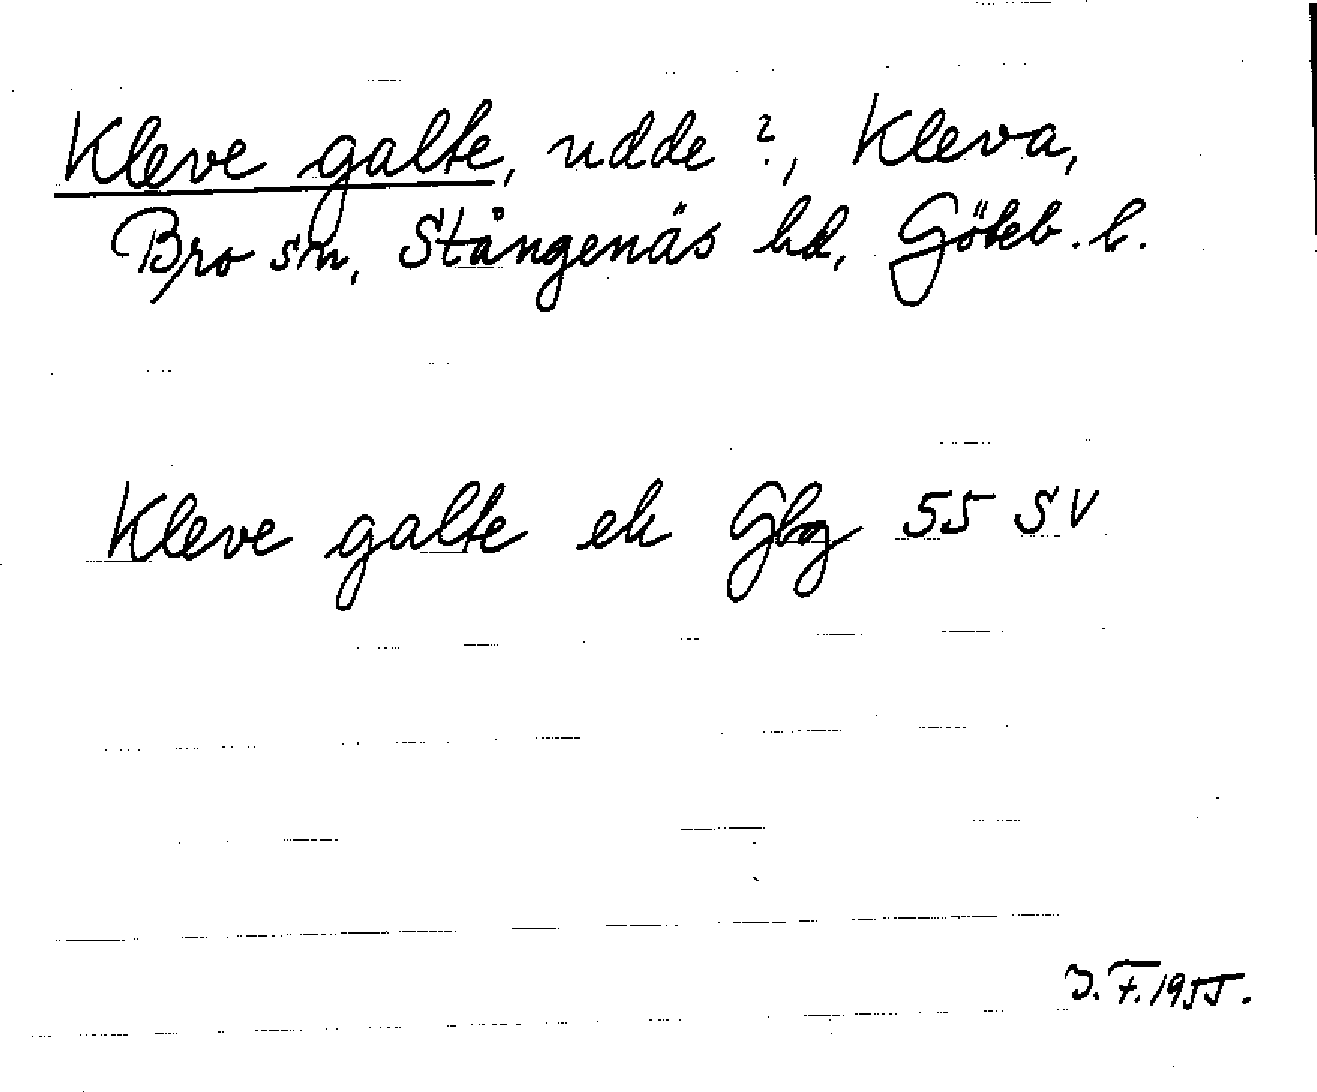 Kleve galte, udde ?, Kleva,
Bro sn, Stångenäs hd, Göteb. l.
Kleve galte ek Gbg 55 SV
J. F. 1955.